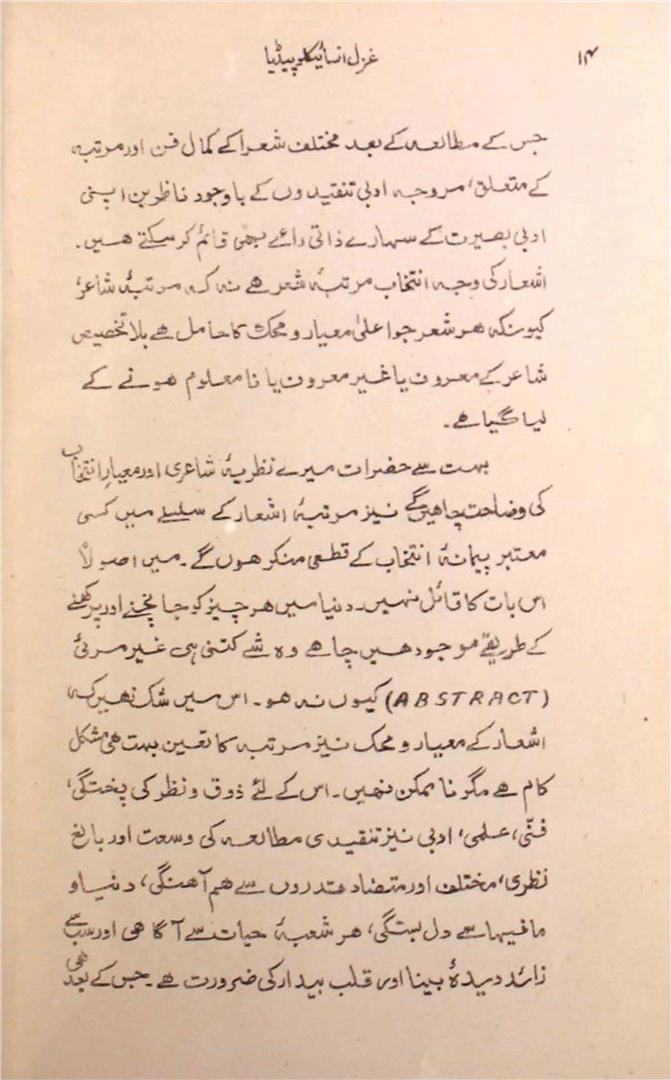 ۱۴ غزل انسائیکلوپیڈیا
جس کے مطالعہ کے بعد مختلف شعرا کے کمال فن اور مرتبہ
کے متعلق، مروجہ ادبی تنقیدوں کے باوجود ناظرین اپنی
ادبی بصیرت کے سہارے ذاتی رائے بھی قائم کر سکتے ھیں۔
اشعار کی وجہ انتخاب مرتبۂ شعر ھے نہ کہ مرتبۂ شاعر،
کیونکہ ھر شعر جو اعلیٰ معیار و محک کا حامل ھے بلا تخصیص
شاعر کے معروف یا غیر معروف یا نا معلوم ھونے کے
لیا گیا ھے۔
بہت سے حضرات میرے نظریۂ شاعری اور معیارِ انتخاب
کی وضاحت چاھیں گے نیز مرتبۂ اشعار کے سلسلے میں کسی
معتبر پیمانۂ انتخاب کے قطعی منکر ھوں گے۔ میں اصولاً
اس بات کا قائل نہیں۔ دنیا میں ھر چیز کو جانچنے اور پرکھنے
کے طریقے موجود ھیں چاھے وہ شے کتنی ہی غیر مرئی
(ABSTRACT) کیوں نہ ھو۔ اس میں شک نھیں کہ
اشعار کے معیار و محک نیز مرتبہ کا تعین بہت ھی مشکل
کام ھے مگر نا ممکن نہیں۔ اس کے لئے ذوق و نظر کی پختگی،
فنّی، علمی، ادبی نیز تنقیدی مطالعہ کی وسعت اور بالغ
نظری، مختلف اور متضاد قدروں سے ھم آھنگی، دنیا و
مافیہا سے دل بستگی، ھر شعبۂ حیات سے آگاھی اور سب سے
زائد دیدۂ بینا اور قلب بیدار کی ضرورت ھے۔ جس کے بعد ھی